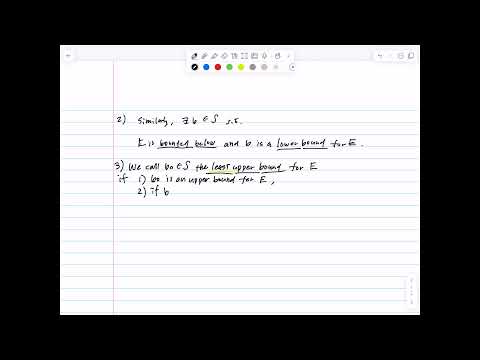 2) Similarly, ∃ b ∈ S s.t.
E is bounded below and b is a lower bound for E.
3) We call b0 ∈ S the least upper bound for E
if 1) b0 is an upper bound for E,
2) if b